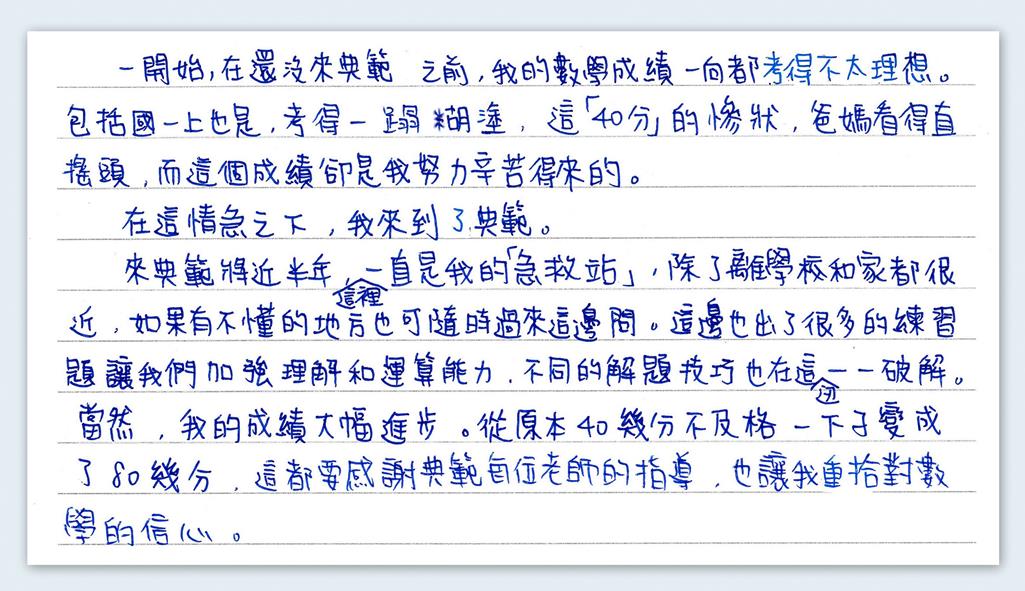 一開始,在還沒來典範 之前,我的數學成績一向都考得不太理想。
包括國一上也是,考得一蹋糊塗,這「40分」的慘狀,爸媽看得直
搖頭,而這個成績卻是我努力辛苦得來的。
在這情急之下,我來到了典範。
來典範將近半年,這裡一直是我的「急救站」,除了離學校和家都很
近,如果有不懂的地方也可隨時過來這邊問。這邊也出了很多的練習
題讓我們加強理解和運算能力,不同的解題技巧也在這边一一破解。
當然,我的成績大幅進步。從原本40幾分不及格一下子變成
了80幾分,這都要感謝典範每位老師的指導,也讓我重拾對數
學的信心。